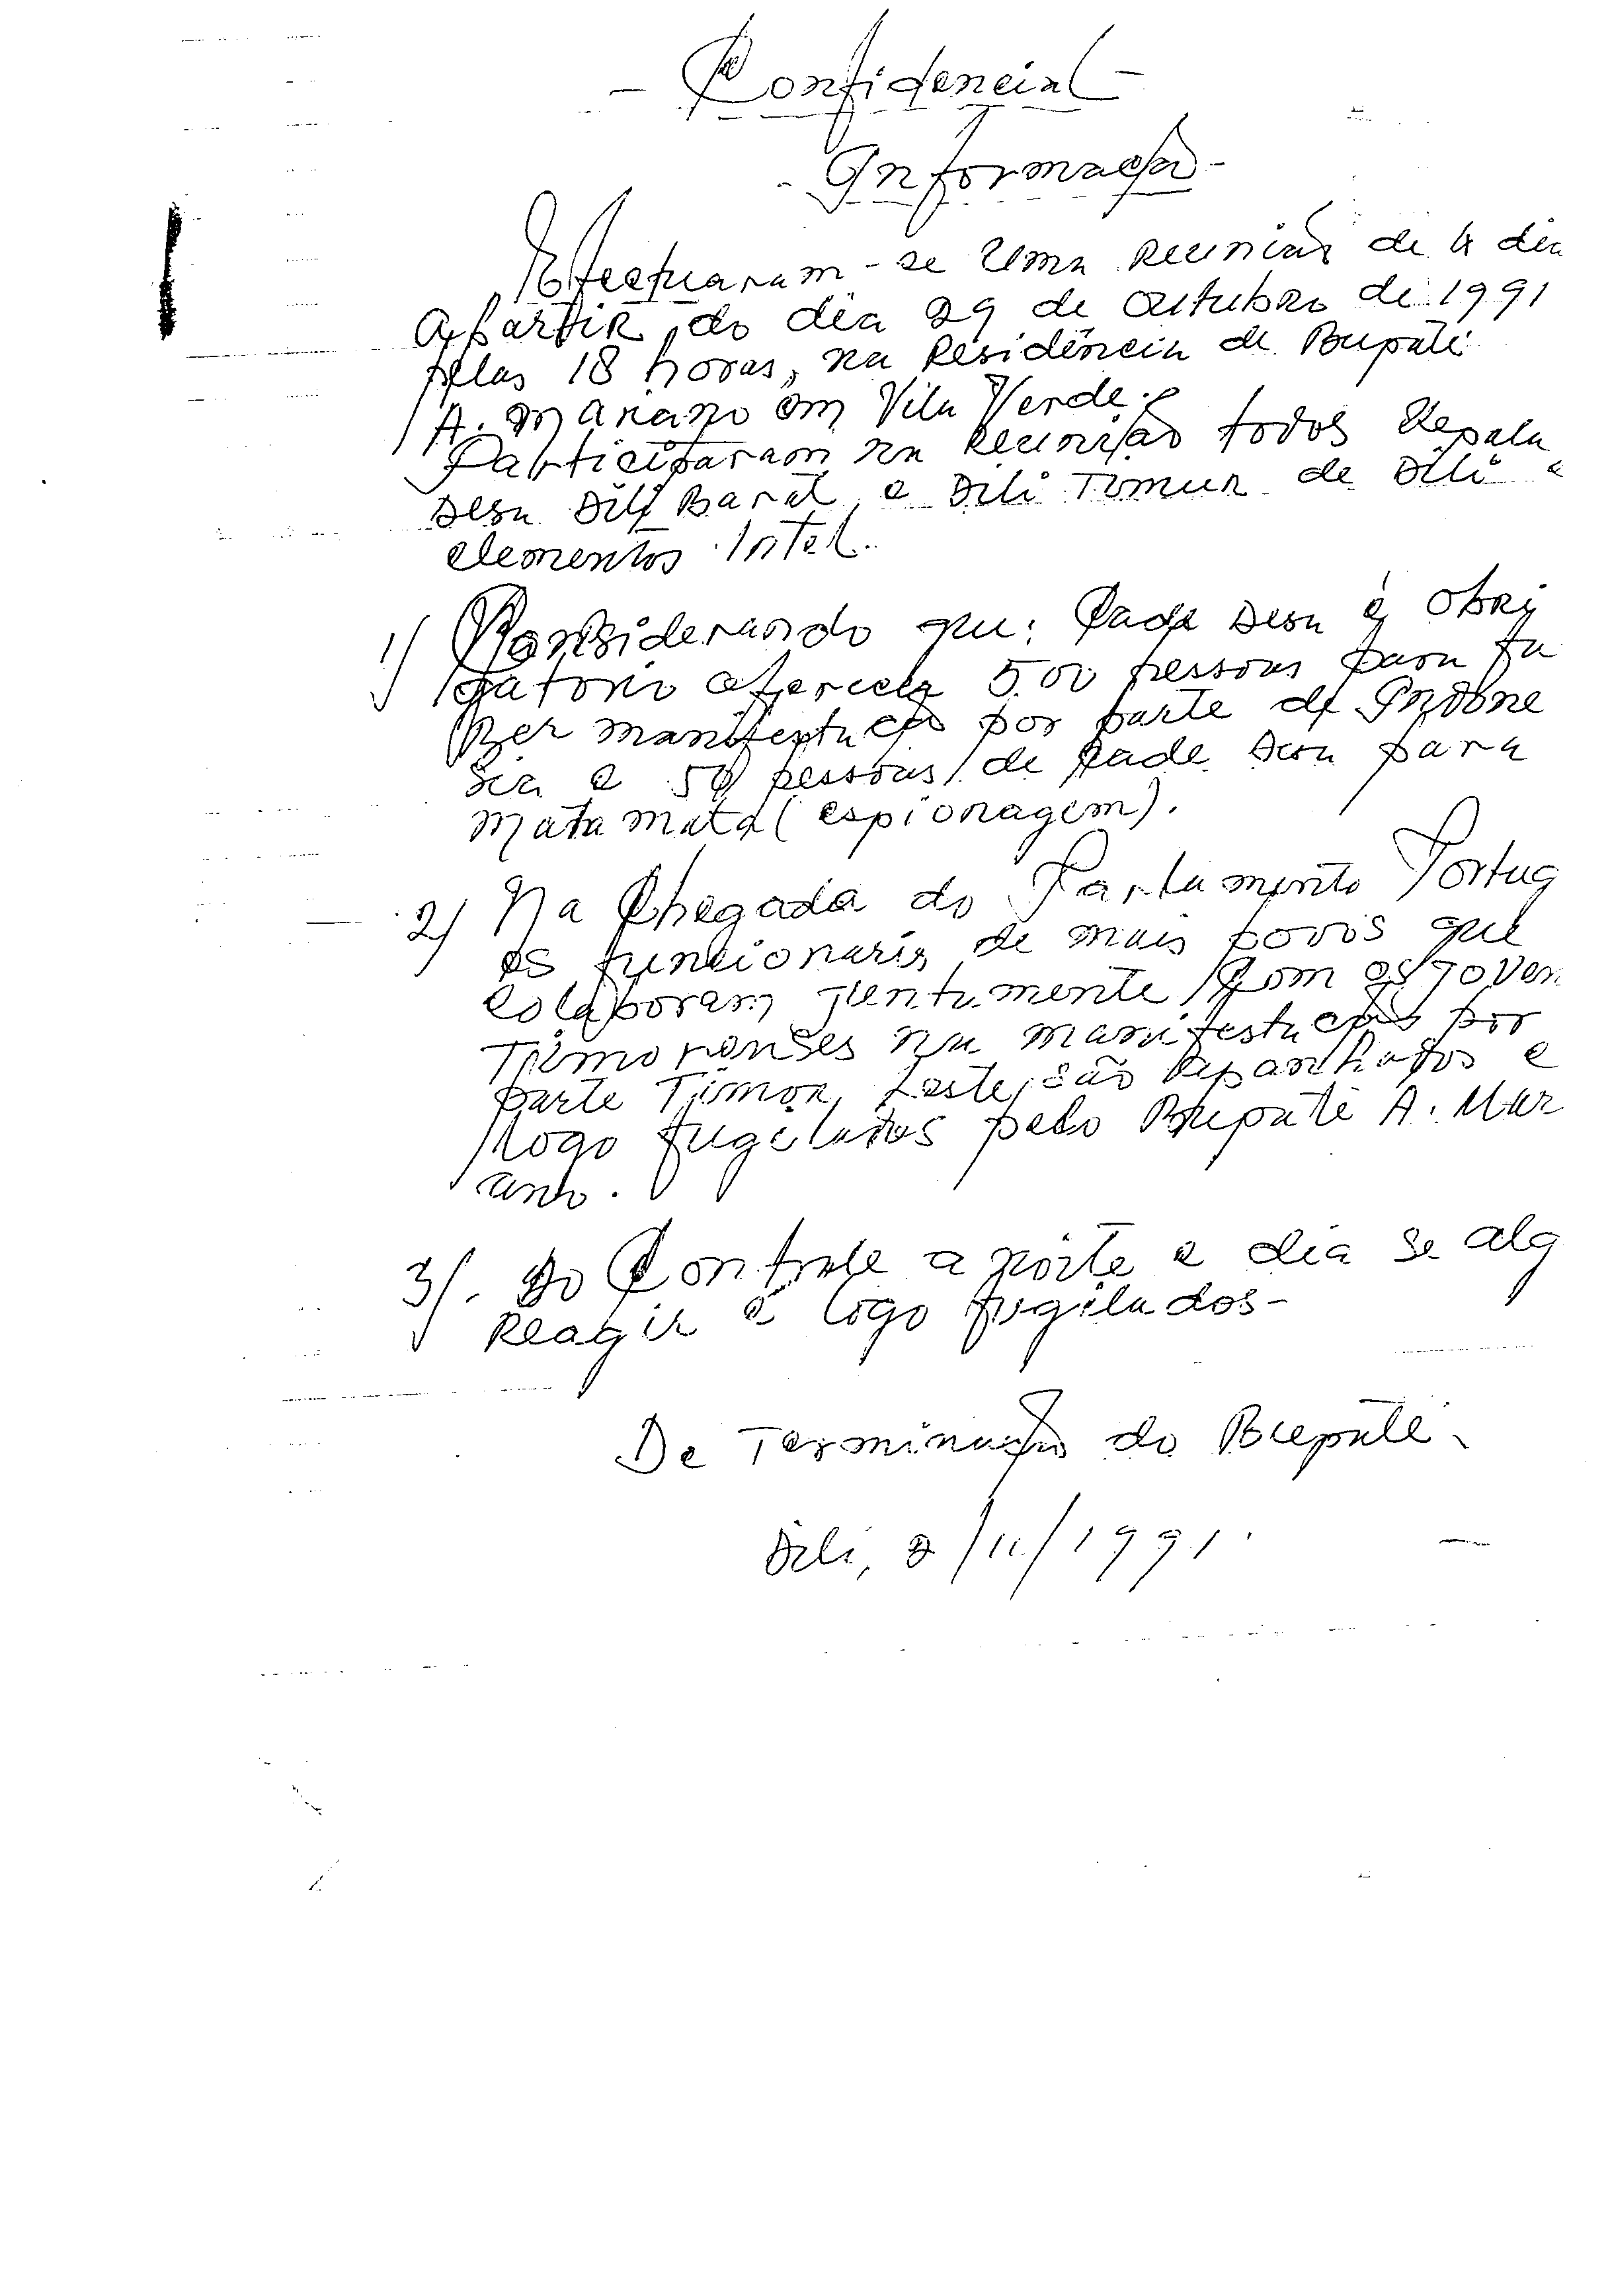 - Confidencial -
- Informação -
Efectuaram-se uma reunião de 4 dia
apartir do dia 29 de outubro de 1991
pelas 18 horas, na Residência de Bupati
A. Mariano em Vila Verde.
Participaram na Reunião todos Kepala
Desa Dili Barat e Dili Timur de Dili e
elementos Intel.
1) Considerando que: Cada Desa é obri
gatorio oferecer 500 pessoas para fa
zer manifestação por parte de Indone
sia e 50 pessoas de cade Desa para
Mata mata (espionagem).
2) Na Chegada do Parlamento Portug
os funcionarios de mais povos que
colaboram juntamente com os joven
Timorenses na manifestação por
parte Timor Leste, são apanhados e
logo fugilados pelo Bupati A. Mar
ano.
3). Do Controle a noite e dia se alg
Reagir é logo fugilados -
De Terminação do Bupati.
Dili, 2/11/1991.